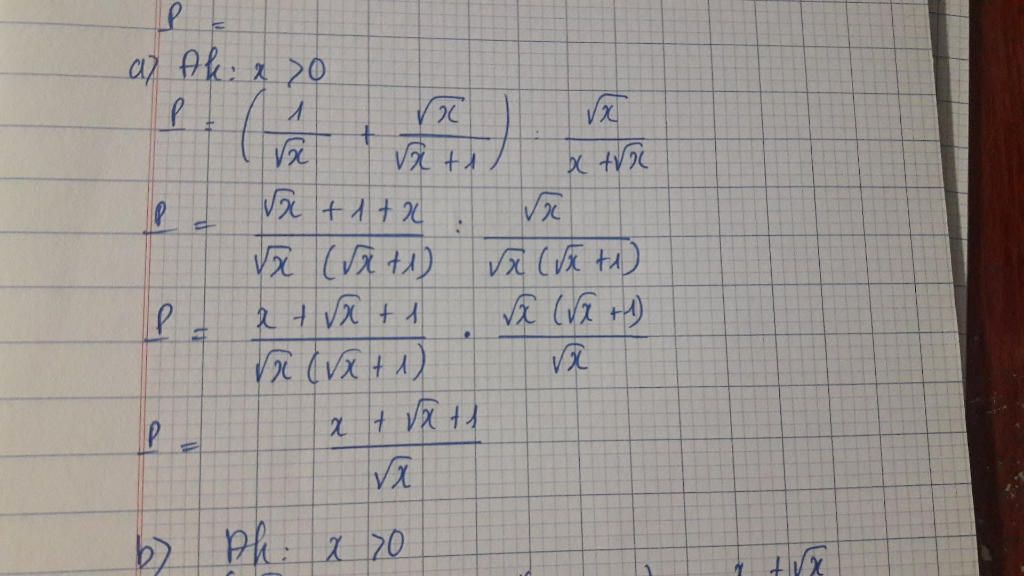 P =
a) Đk: x > 0
P = (1/√x + √x/(√x + 1)) : √x/(x + √x)
P = (√x + 1 + x)/(√x (√x + 1)) : √x/(√x (√x + 1))
P = (x + √x + 1)/(√x (√x + 1)) . (√x (√x + 1))/√x
P = (x + √x + 1)/√x
b) Đk: x > 0
x + √x